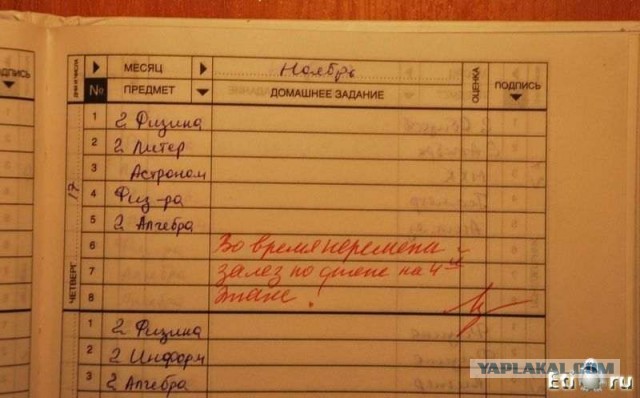 ПОДПИСЬ
ДНИ И ЧИСЛА МЕСЯЦ Ноябрь ОЦЕНКА ПОДПИСЬ
№ ПРЕДМЕТ ДОМАШНЕЕ ЗАДАНИЕ
ЧЕТВЕРГ 17
1 2 Физика
2 2 Литер
3 Астроном
4 Физ-ра
5 2 Алгебра
6 Во время перемены
7 залез по стене на 4ый
8 этаж!
1 2 Физика
2 2 Информ
3 2 Алгебра
YAPLAKAL.COM